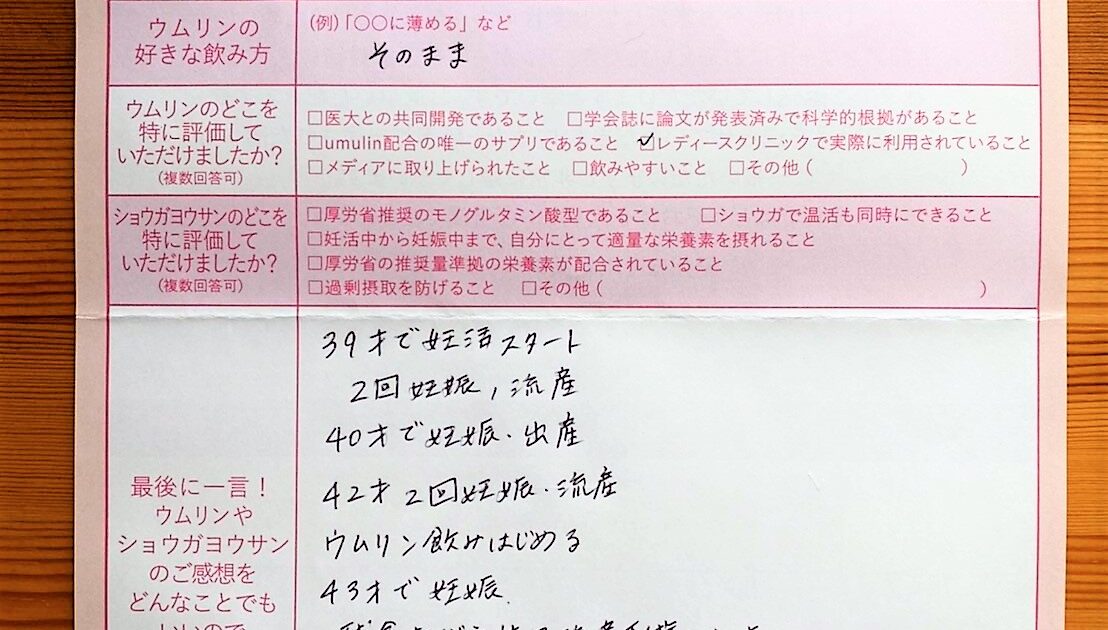 ウムリンの
好きな飲み方
(例)「〇〇に薄める」など
そのまま
ウムリンのどこを
特に評価して
いただけましたか?
(複数回答可)
□医大との共同開発であること □学会誌に論文が発表済みで科学的根拠があること
□umulin配合の唯一のサプリであること ☑レディースクリニックで実際に利用されていること
□メディアに取り上げられたこと □飲みやすいこと □その他( )
ショウガヨウサンのどこを
特に評価して
いただけましたか?
(複数回答可)
□厚労省推奨のモノグルタミン酸型であること □ショウガで温活も同時にできること
□妊活中から妊娠中まで、自分にとって適量な栄養素を摂れること
□厚労省の推奨量準拠の栄養素が配合されていること
□過剰摂取を防げること □その他( )
最後に一言!
ウムリンや
ショウガヨウサン
のご感想を
どんなことでも
いいので
39才で妊活スタート
2回妊娠,流産
40才で妊娠.出産
42才 2回妊娠.流産
ウムリン飲みはじめる
43才で妊娠.